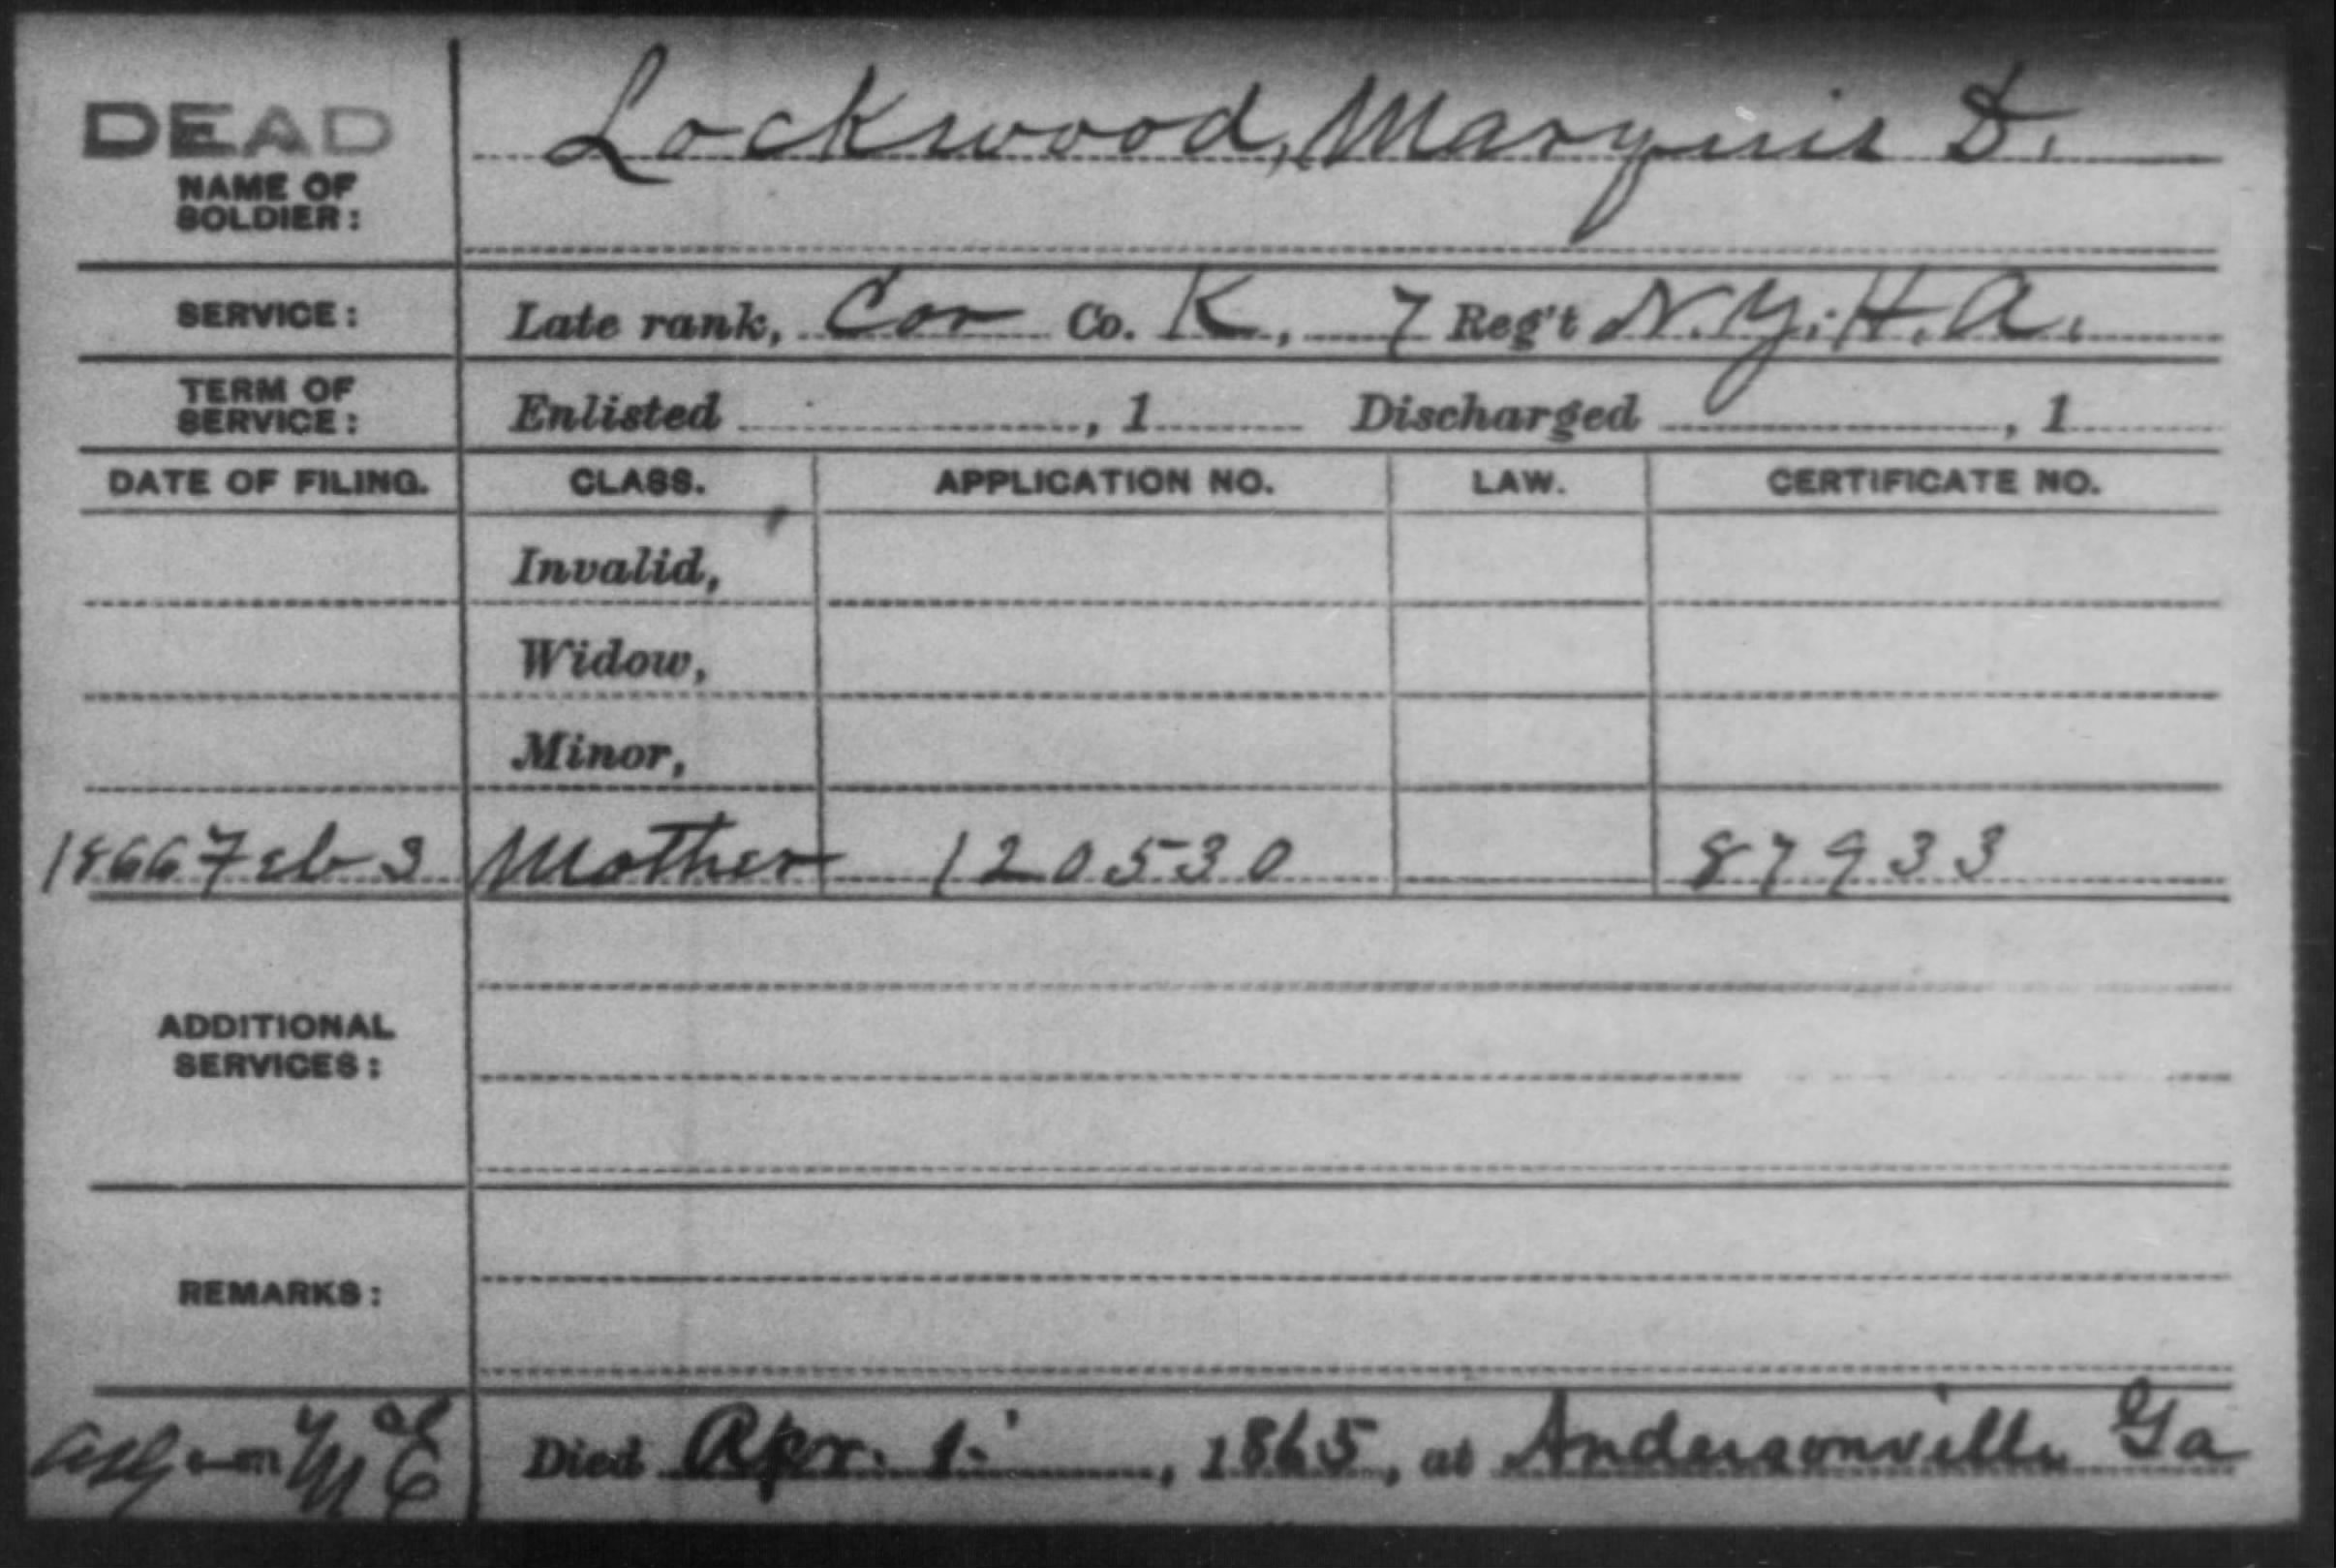 DEAD
NAME OF
SOLDIER:
Lockwood, Marquis D.
SERVICE: Late rank, Cor Co. K, 7 Reg't N.Y. H.A.
TERM OF
SERVICE:
Enlisted , 1 Discharged , 1
DATE OF FILING. CLASS. APPLICATION NO. LAW. CERTIFICATE NO.
Invalid,
Widow,
Minor,
1866 Feb 3 Mother 120530 87933
ADDITIONAL
SERVICES:
REMARKS:
Died Apr. 1, 1865, at Andersonville Ga